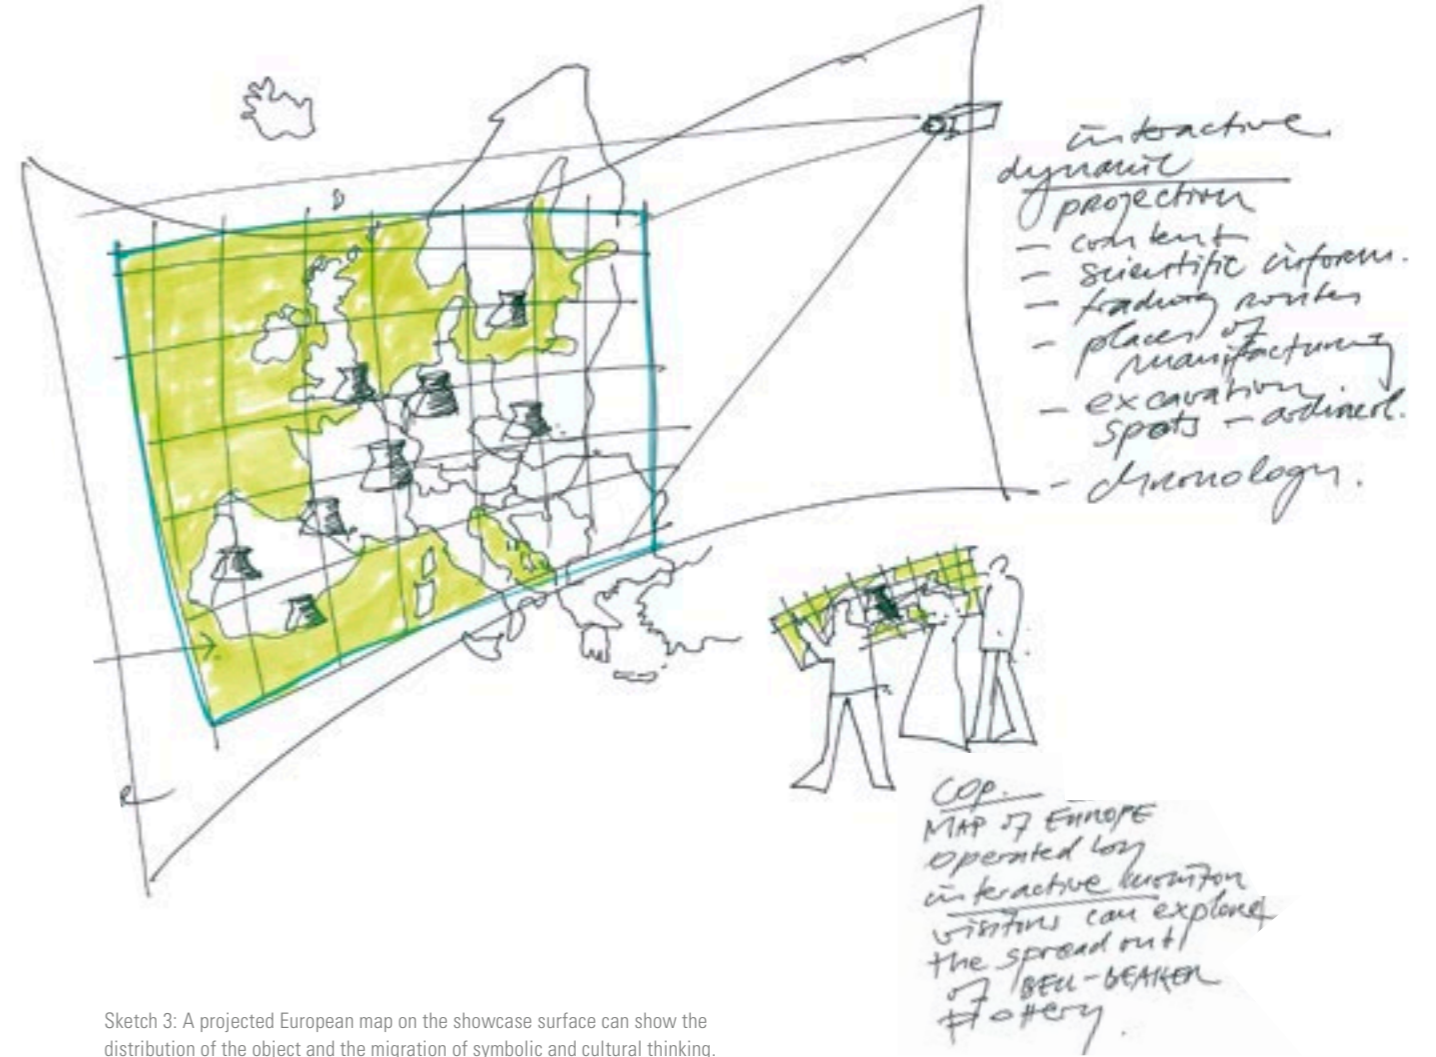 interactive
dynamic
projection
– content
– scientific inform.
– trading routes
– places of
manufacturing
– excavation
spots –
– chronology.
COP.
MAP of EUROPE
operated by
interactive monitor
visitors can explore
the spread out
of BELL-BEAKER
pottery.
Sketch 3: A projected European map on the showcase surface can show the
distribution of the object and the migration of symbolic and cultural thinking.